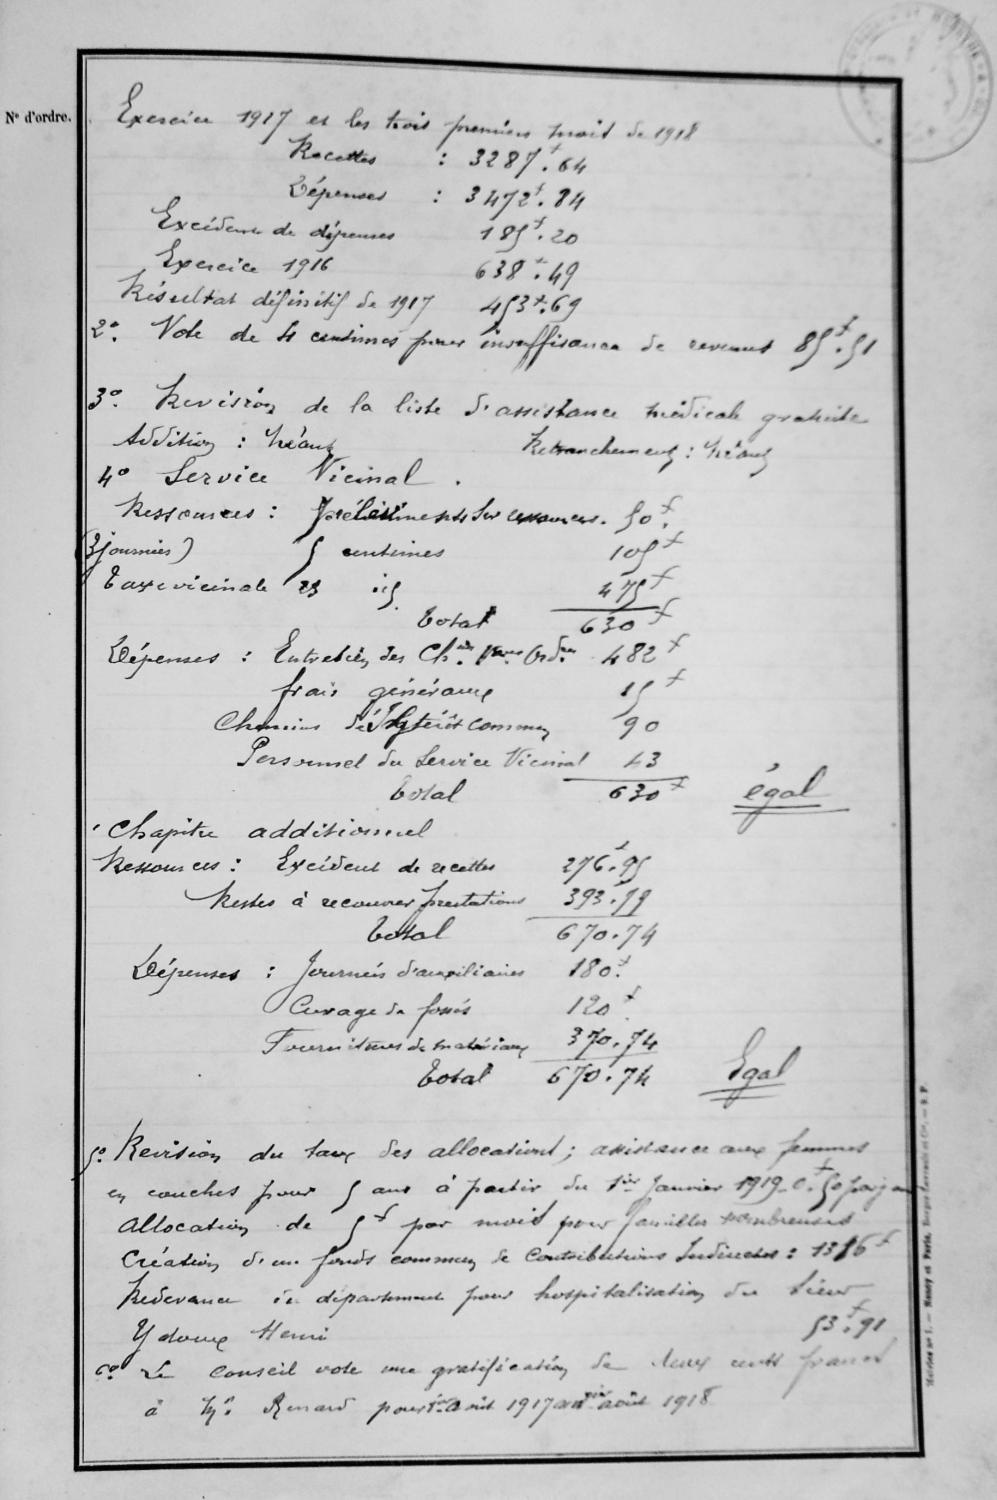 N° d'ordre.
Exercice 1917 et les trois premiers mois de 1918
Recettes : 3287f.64
Dépenses : 3472f.84
Excédent de dépenses 185f.20
Exercice 1916 638f.49
Résultat définitif de 1917 453f.69
2° Vote de 4 centimes pour insuffisance de revenus 85f.51
3° Revision de la liste d'assistance médicale gratuite
Addition : Néant Retranchement : Néant
4° Service Vicinal.
Ressources : Prélèvements sur ressources. 50f.
(3 journées) 5 centimes 105f
Taxe vicinale 23 id. 475f
Total 630f
Dépenses : Entretien des Ch.ins Vaux Ord.res 482f
frais généraux 15f
Chemins d'Intérêt commun 90
Personnel du Service Vicinal 43
Total 630f égal
Chapitre additionnel
Ressources : Excédent de recettes 276f.95
Restes à recouvrer prestations 393.79
Total 670.74
Dépenses : Journées d'auxiliaires 180f
Curage de fossés 120f
Fournitures de matériaux 370.74
Total 670.74 Egal
5° Revision du taux des allocations ; assistance aux femmes
en couches pour 5 ans à partir du 1er Janvier 1919 0f.50 par j
Allocation de 5f par mois pour familles nombreuses
Création d'un fonds commun de Contributions Indirectes : 1316f
Redevance du département pour hospitalisation du Sieur
Ydoux Henri 53f.91
6° Le Conseil vote une gratification de deux cents francs
à Mr. Renard pour 1er août 1917 au 1er août 1918